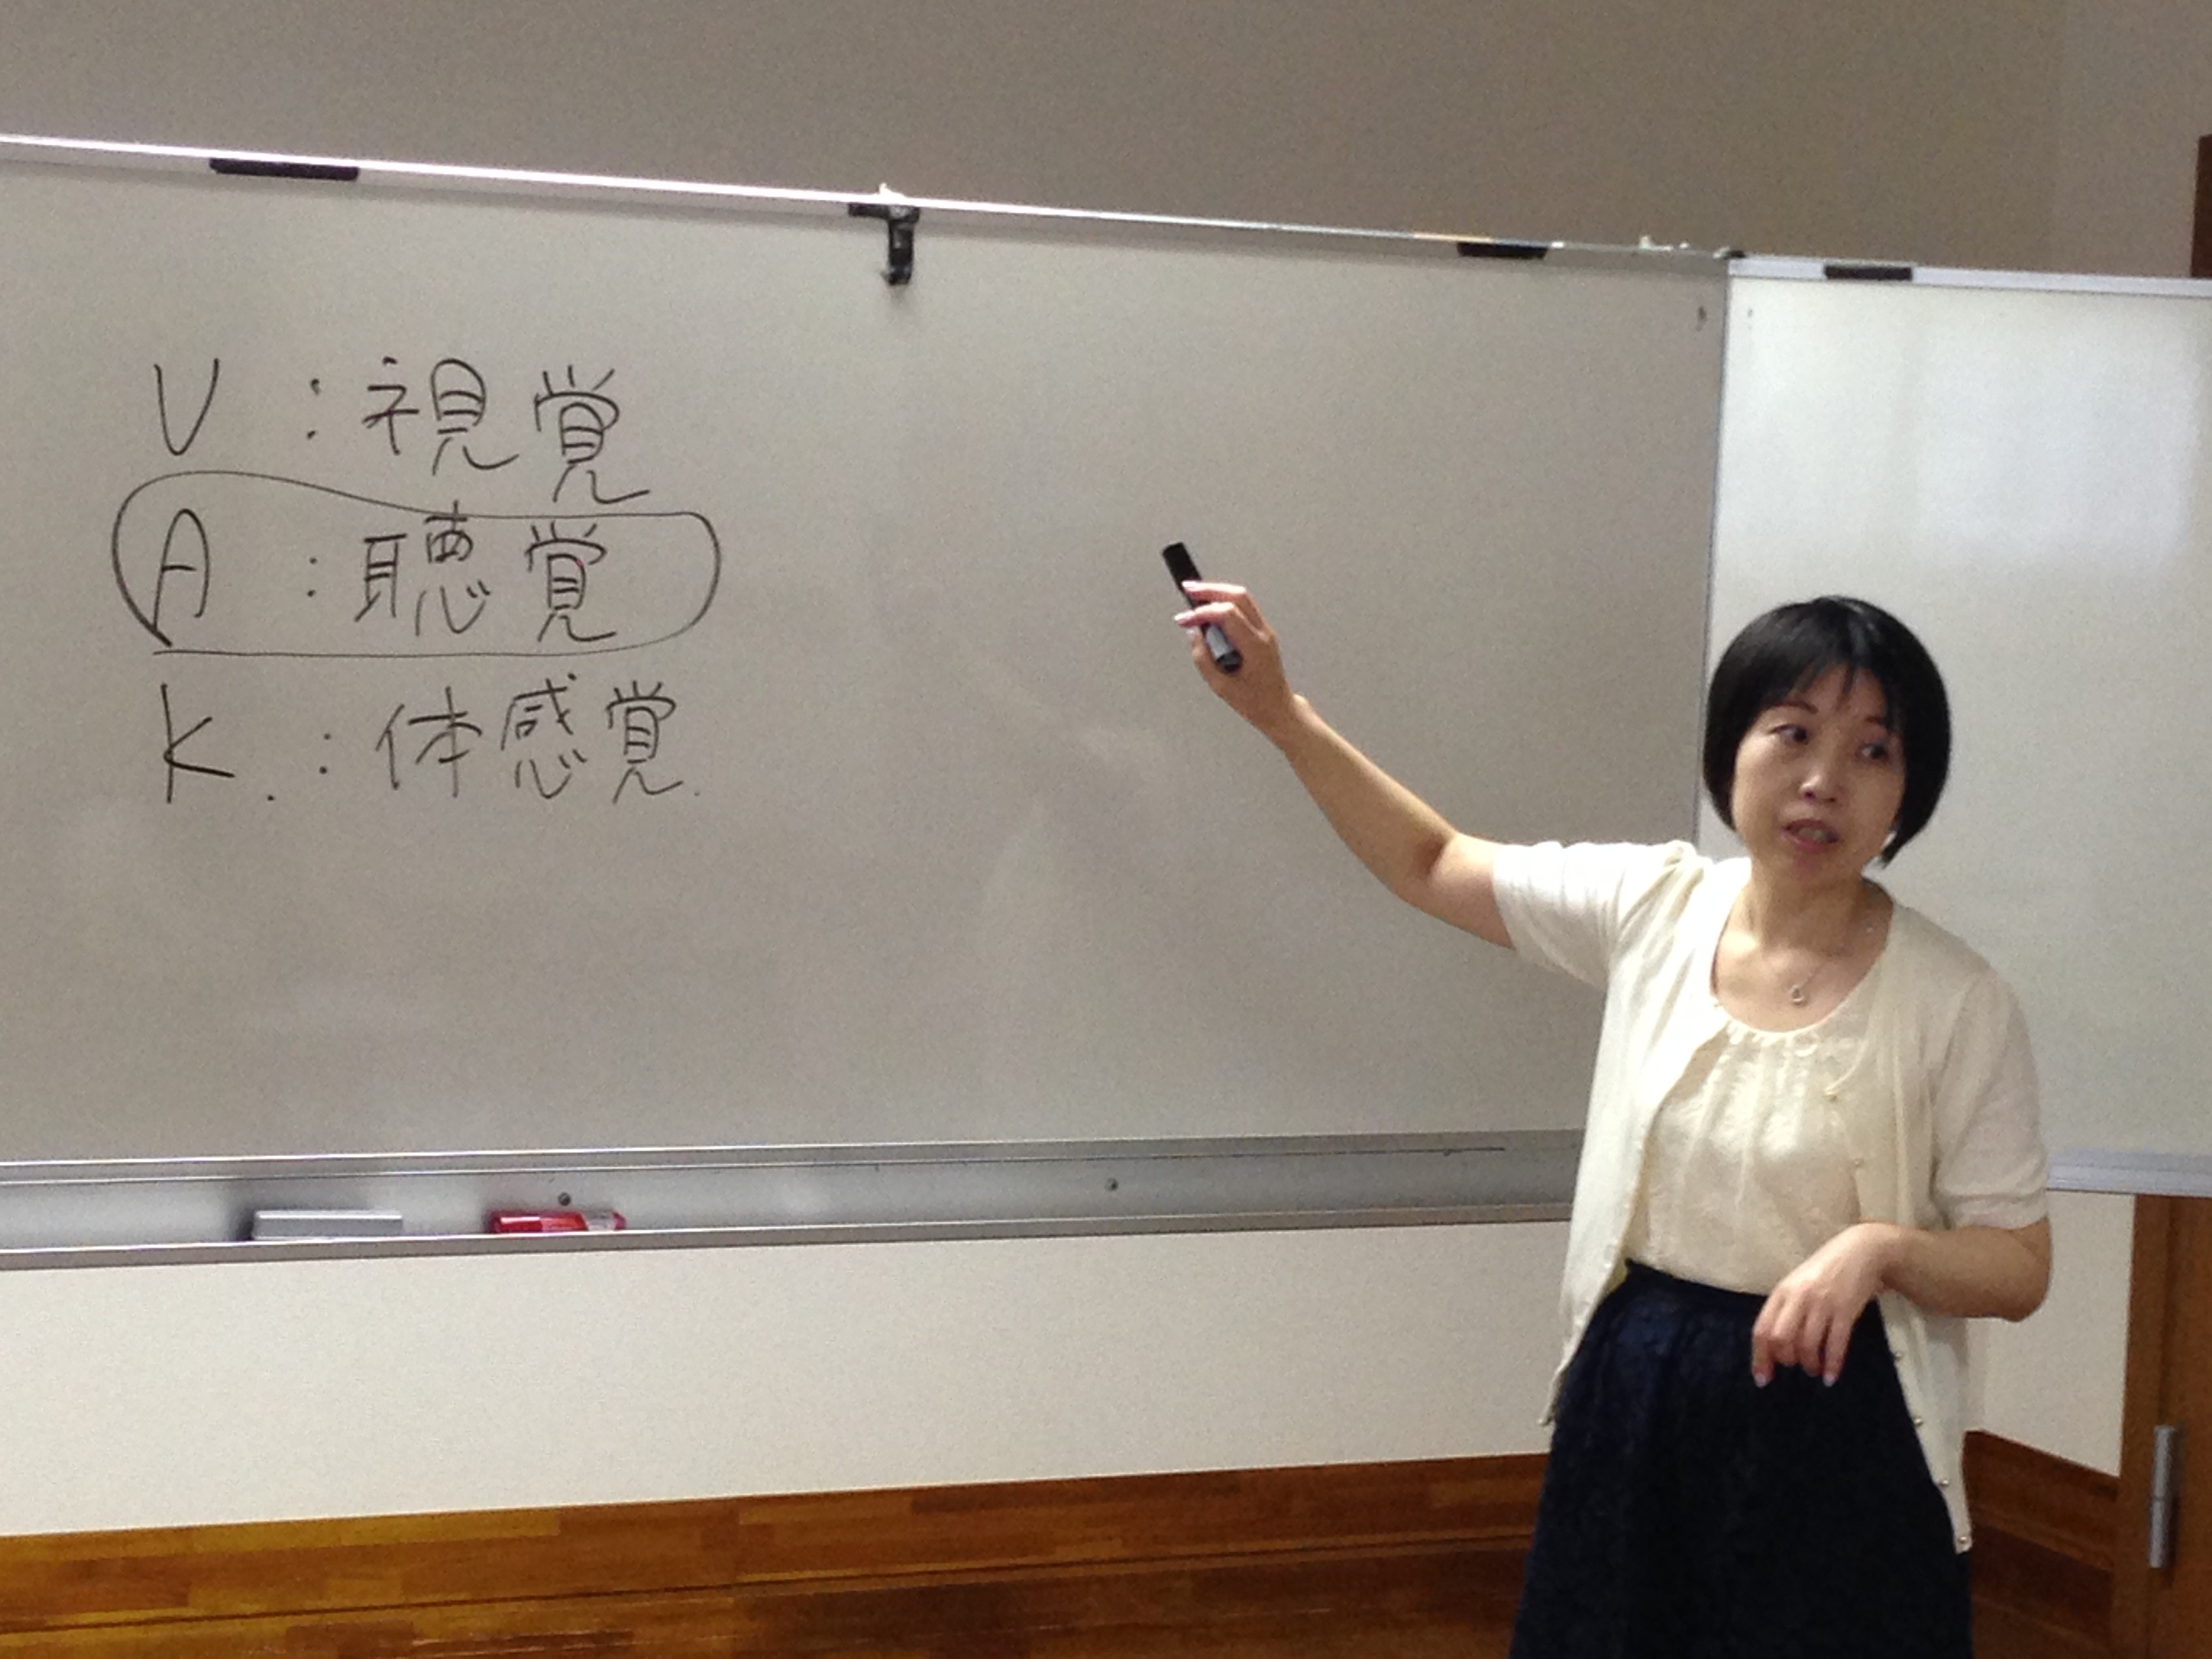 V : 視覚
A : 聴覚
K. : 体感覚.